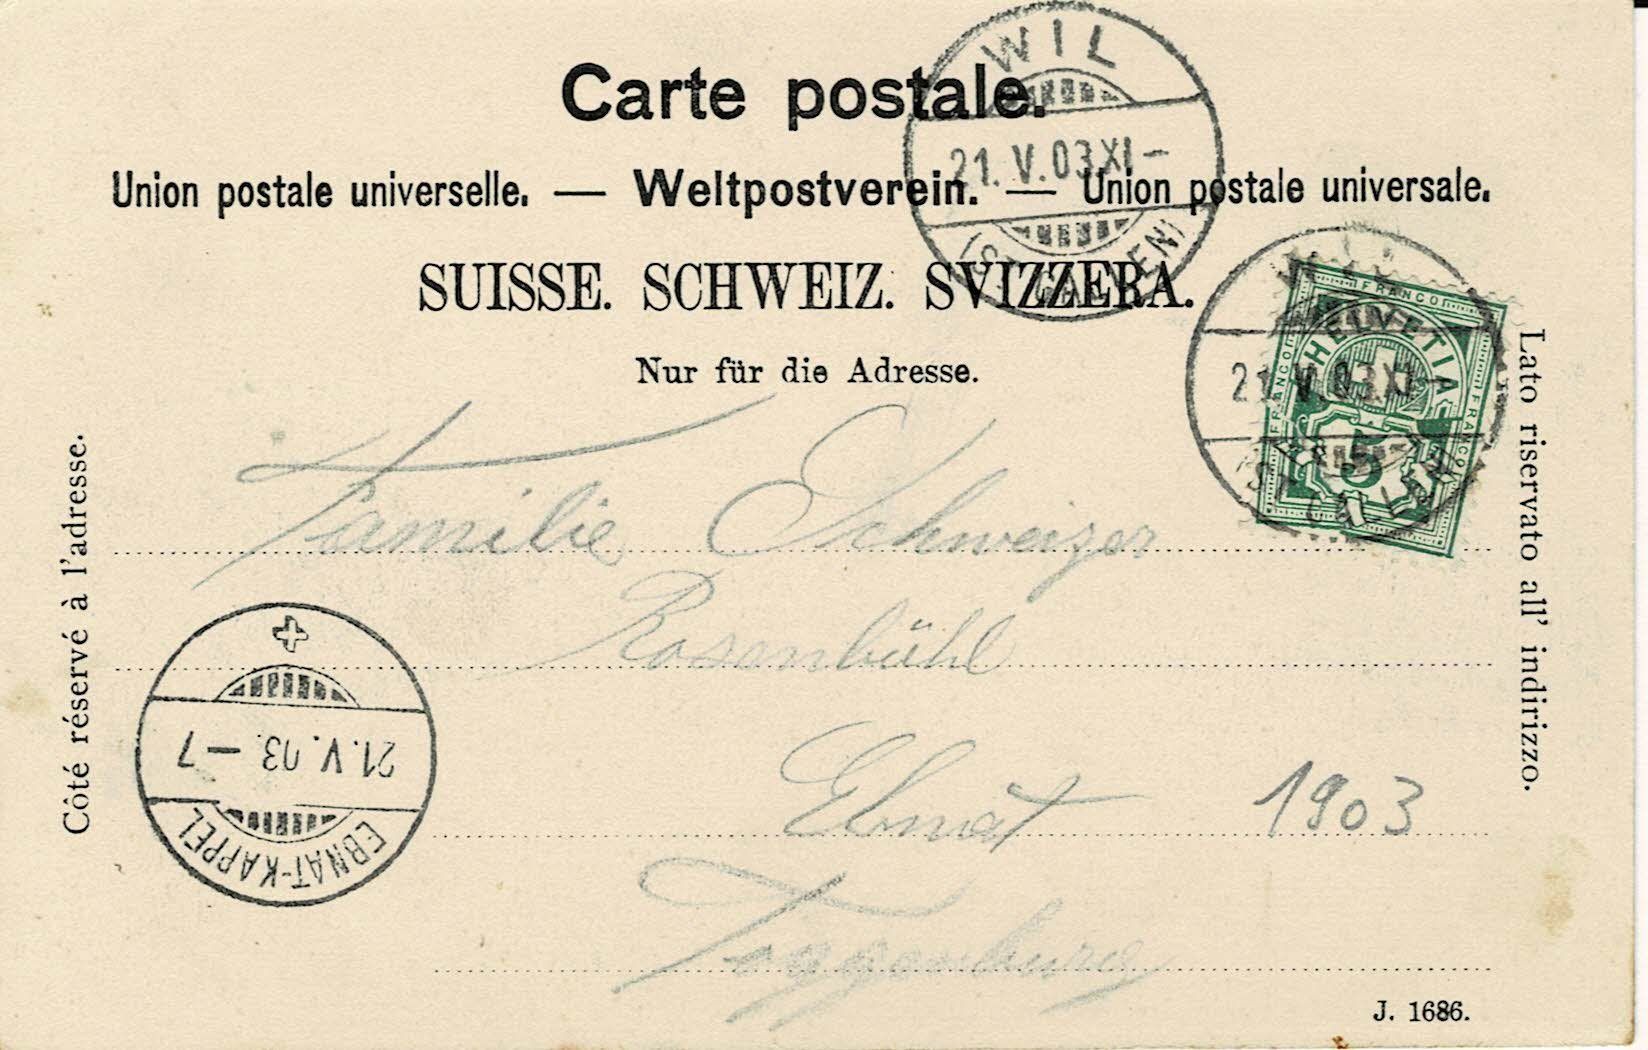 Carte postale.
Union postale universelle. — Weltpostverein. — Union postale universale.
SUISSE. SCHWEIZ. SVIZZERA.
Nur für die Adresse.
WIL
21. V. 03 XI –
(ST. GALLEN)
FRANCO
FRANCO
FRANCO
HELVETIA
5
21. V. 03 XI –
Côté réservé à l'adresse.
Lato riservato all' indirizzo.
Familie Schweizer
Rosenbühl
Ebnat
1903
Toggenburg
21. V. 03 – 7
EBNAT-KAPPEL
J. 1686.